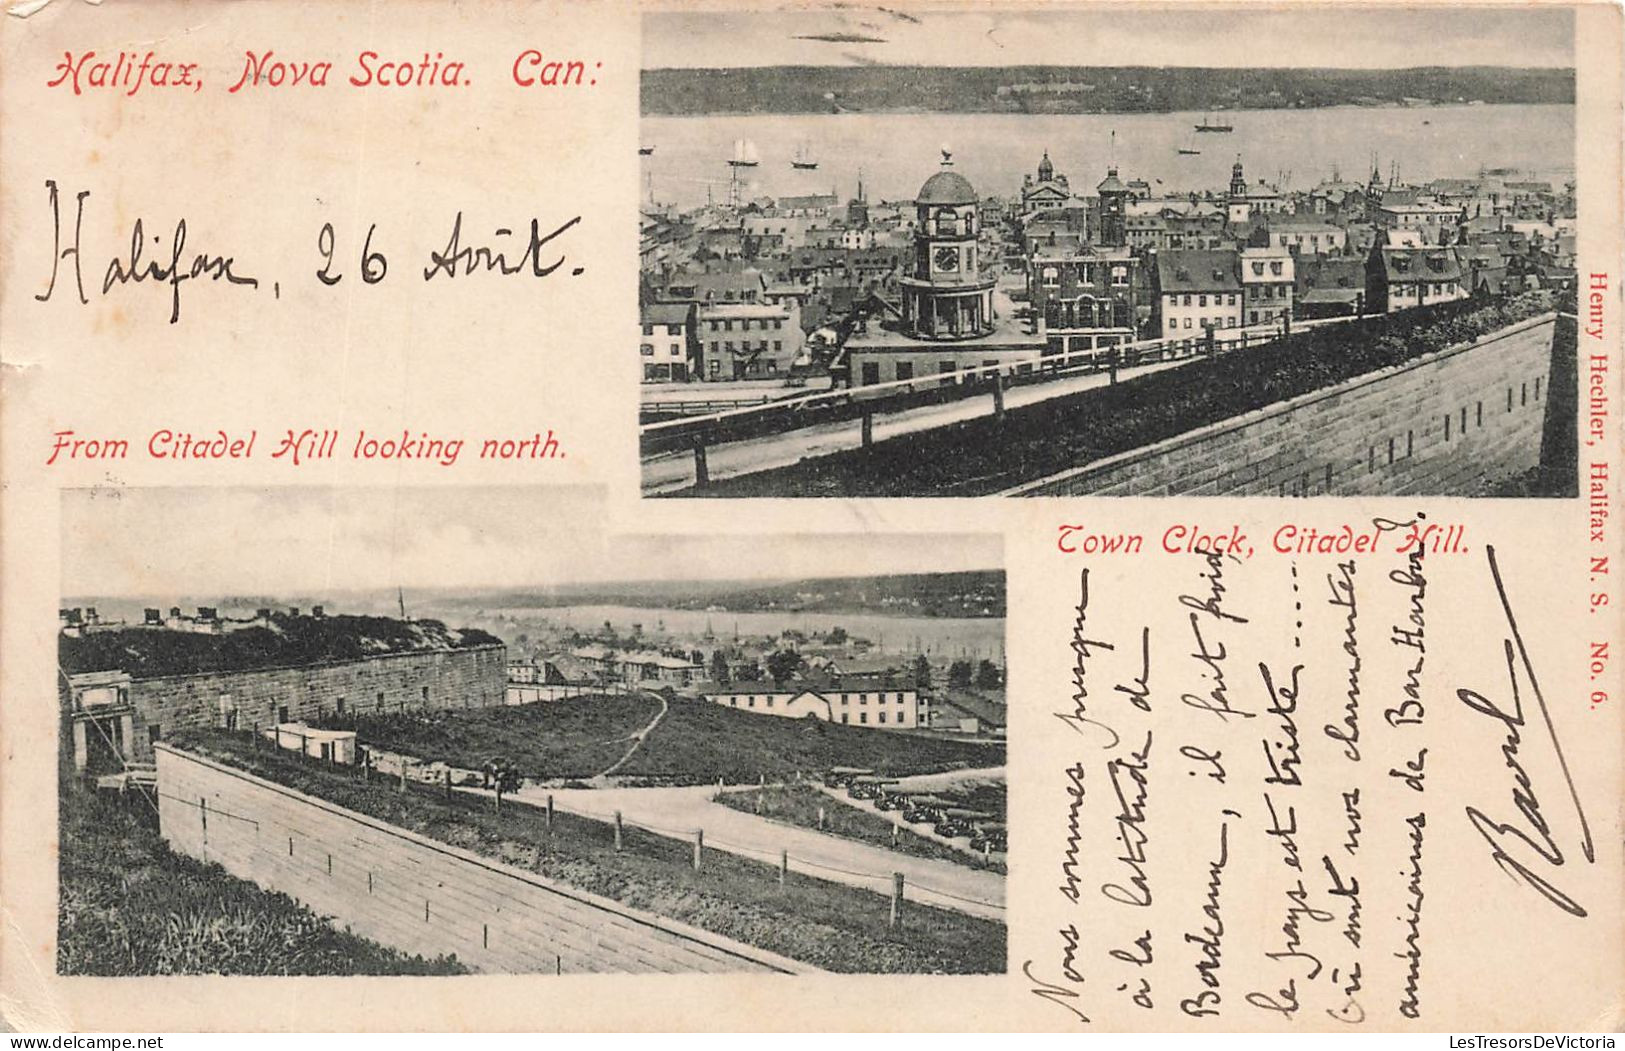 Halifax, Nova Scotia. Can:
Halifax, 26 Août.
From Citadel Hill looking north.
Town Clock, Citadel Hill.
Henry Hechler, Halifax N. S. No. 6.
Nous sommes presque
à la latitude de
Bordeaux, il fait froid,
le pays est triste......
Où sont nos charmantes
américaines de Bar Harbor?.
Raoul
LesTresorsDeVictoria
www.delcampe.net